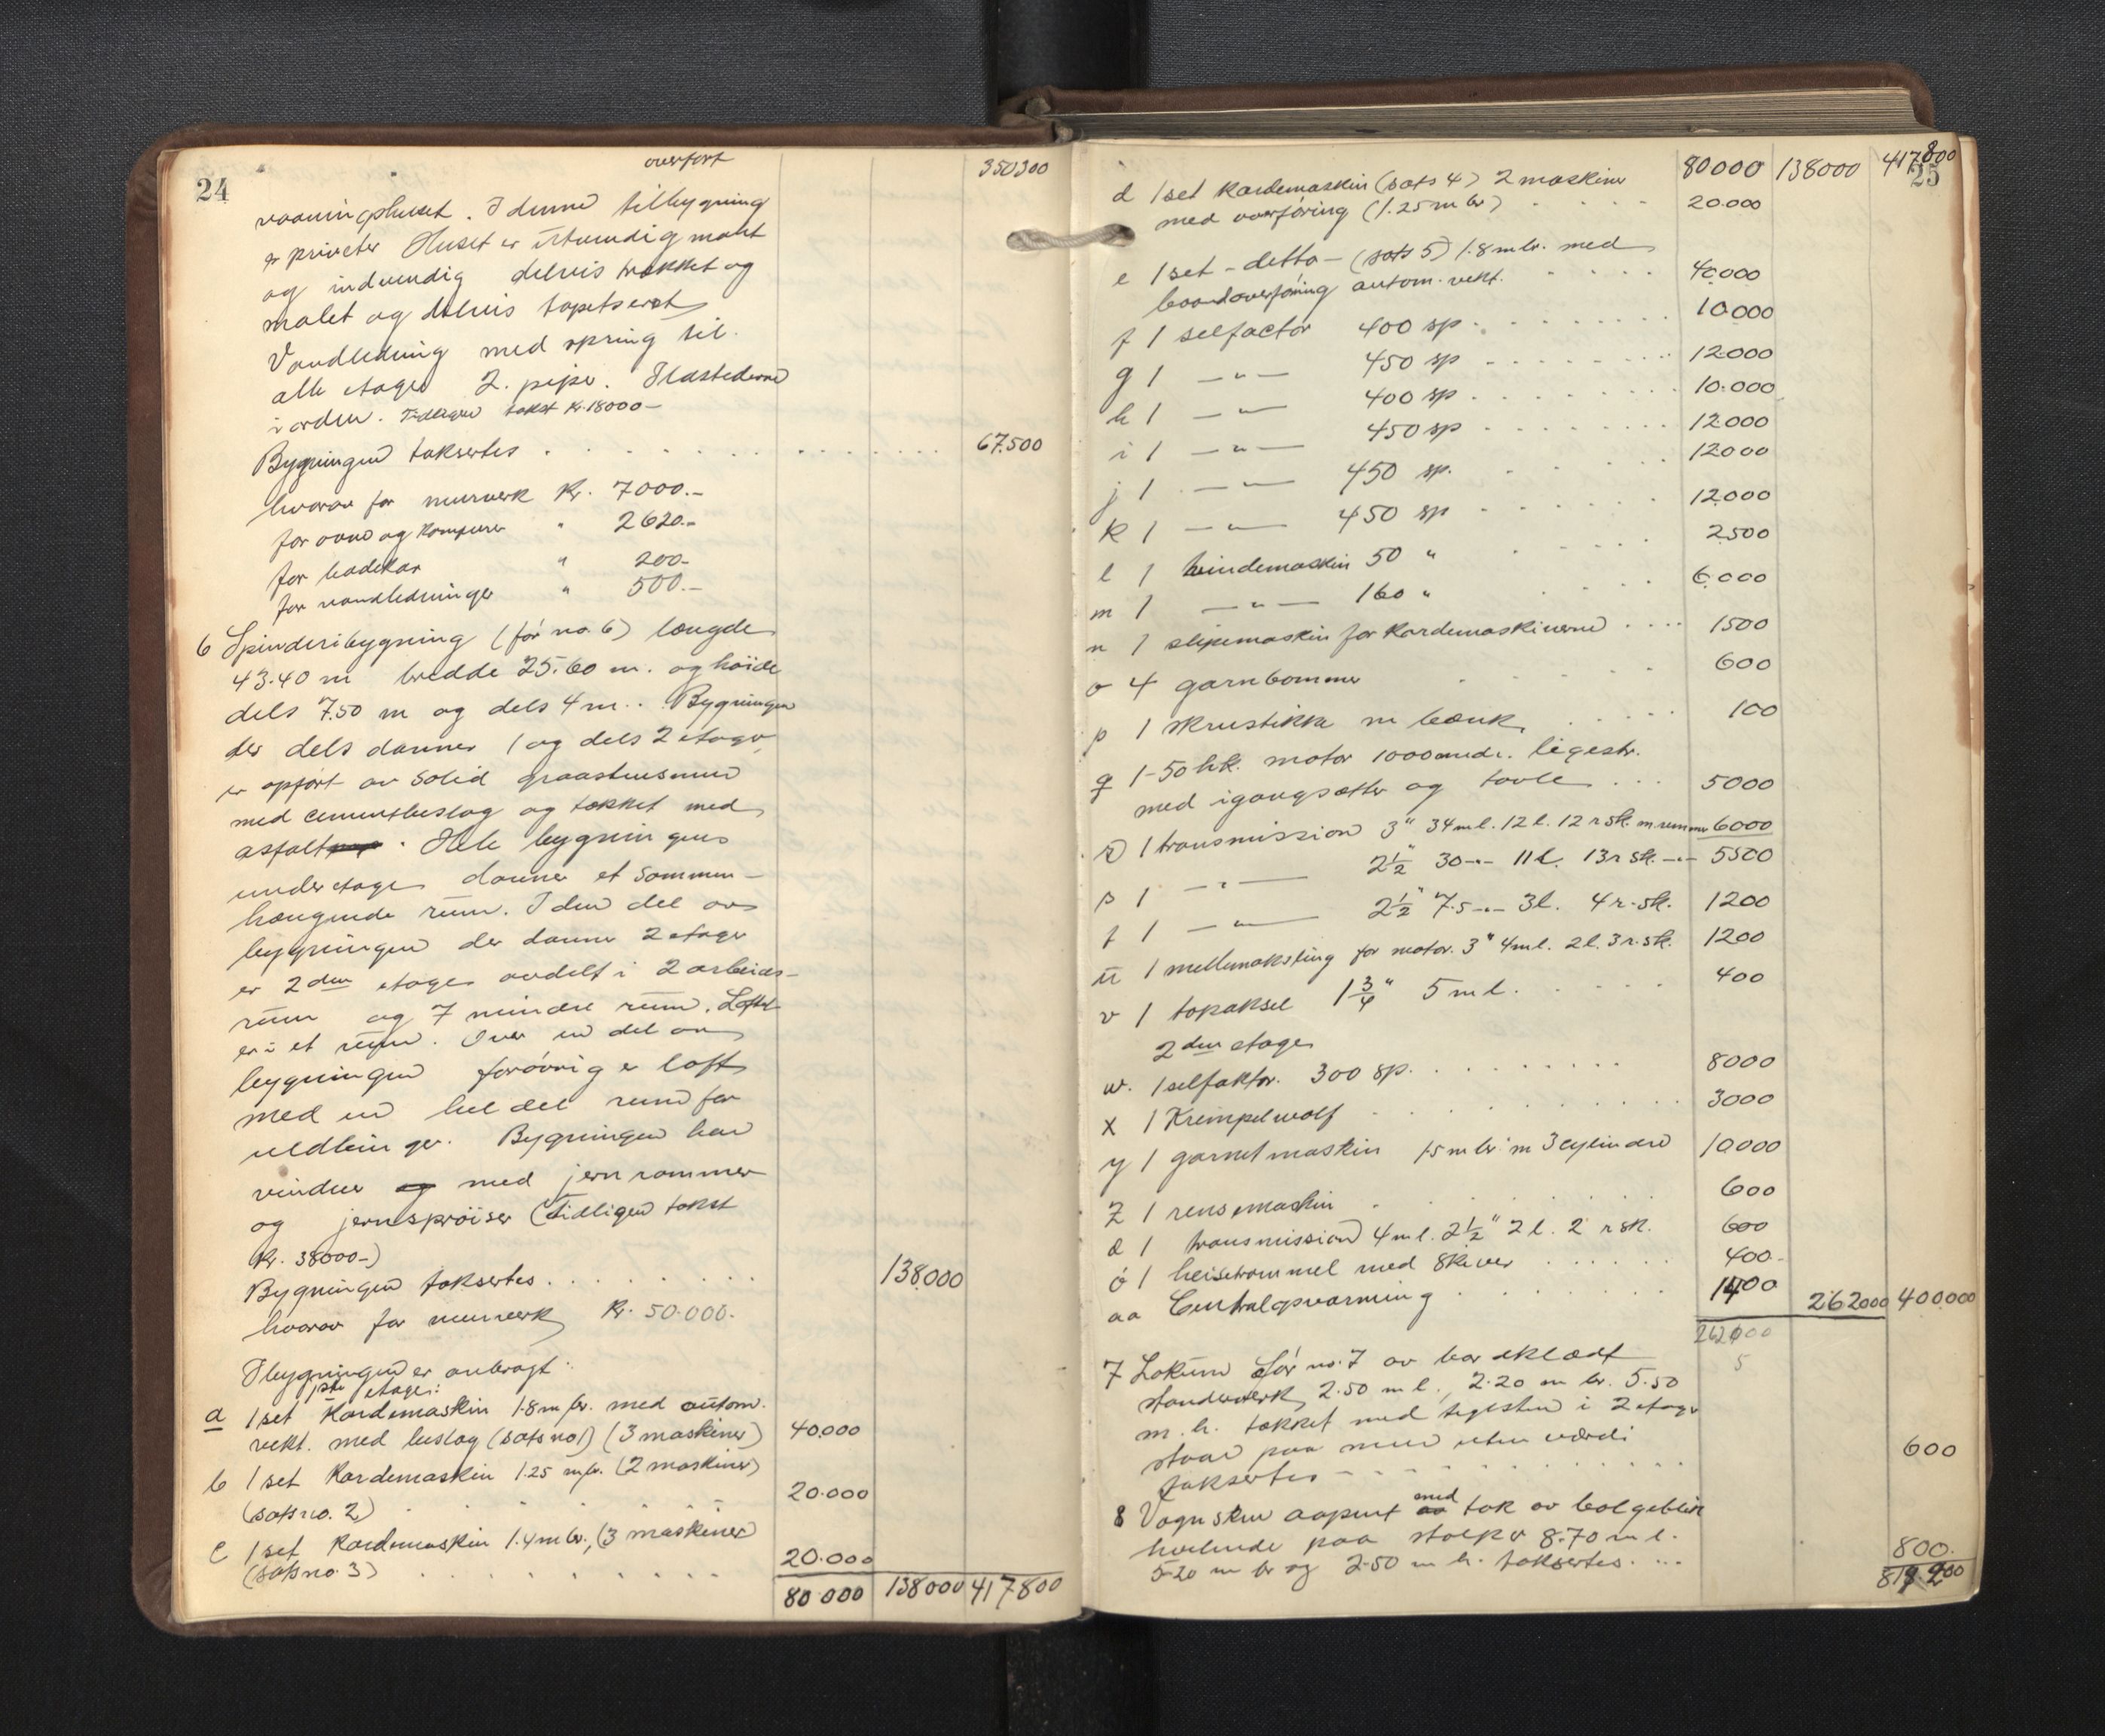 24
overført 350300
vaaningshuset. I denne tilbygning
er priveter Huset er utvendig malt
og indvendig delvis trækket og
malet og delvis tapetseret
Vandledning med spring til
alle etager 2. piper. Ildstederne
i orden. Tidligere takst Kr. 18000-
Bygningen taksertes . . . . . . . . . . 67.500
hvorav for murverk Kr. 7000.-
for ovne og Komfurer " 2620.-
for badekar " 200-
for vandledninger " 500.-
6 Spinderibygning (før no. 6) længde
43.40 m bredde 25.60 m. og høide
dels 7.50 m og dels 4 m. Bygningen
der dels danner 1 og dels 2 etager
er opført av solid graastensmur
med cementbeslag og tækket med
asfalt. Hele bygningens
underetage danner et sammen-
hængende rum. I den del av
bygningen der danner 2 etager
er 2den etage avdelt i 2 arbeids-
rum og 7 mindre rum. Loftet
er i et rum. Over en del av
bygningen forøvrig er loft
med en hel del rum for
uldbinger. Bygningen har
vinduer og med jernrammer
og jernsprøiser (Tidligere takst
Kr. 38000-)
Bygningen taksertes . . . . . . . . 138.000
hvorav for murverk Kr. 50.000.-
I bygningen er anbragt:
1ste etage:
a 1 set Kardemaskin 1.8 m br. med autom.
vekt. med beslag (sats no 1) (3 maskiner) 40.000
b 1 set Kardemaskin 1.25 m br. (2 maskiner)
(sats no. 2) . . . . . . 20.000
c 1 set Kardemaskin 1.4 m br., (3 maskiner)
(sats no. 3) . . . . . . . . 20.000
80.000 138000 417800
25
80000 138000 417800
d 1 set kardemaskin (sats 4) 2 maskiner
med overføring (1.25 m br) . . . . 20.000
e 1 set - detto - (sats 5) 1.8 m br. med
baandoverføring autom. vekt. . . . . 40.000
f 1 selfactor 400 sp. . . . . . . . 10.000
g 1 — " — 450 sp . . . . . . . . 12.000
h 1 — " — 400 sp . . . . . . . . 10.000
i 1 — " — 450 sp . . . . . . . . 12.000
j 1 — " — 450 sp. . . . . . 12000
k 1 — " — 450 sp . . . . . . 12.000
l 1 tvindemaskin 50 " . . . . . 2500
m 1 — " — 160 " . . . . 6.000
n 1 slipemaskin for Kardemaskinerne . . . . 1500
o 4 garnbommer . . . . . 600
p 1 skrustikke m bænk . . . . . 100
q 1-50 hk. motor 1000 omdr. ligestr.
med igangsætter og tavle . . . 5000
r 1 transmission 3" 34 m l. 12 l. 12 r sk. m. remmer 6000
s 1 — " — 2½" 30 -"- 11 l. 13 r sk. -"- 5500
t 1 — " — 2½" 7.5 -"- 3 l. 4 r. sk. 1200
u 1 mellemaksling for motor. 3" 4 m l. 2 l. 3 r. sk. 1200
v 1 topaksel 1¾" 5 m l. . . . . . 400
2den etage
w. 1 selfaktor. 300 sp. . . . . . . . . 8000
x 1 Krempelwolf . . . . . . . . . 3000
y 1 garnetmaskin 1.5 m br. m 3 cylindre 10.000
z 1 rensemaskin . . . . . . . 600
æ 1 transmission 4 m l. 2½" 2 l. 2 r sk. 600
ø 1 heisetrommel med Skiver . . . . . . 400.-
aa Centralopvarming . . . . . . . 1400 262000 400.000
262000
5
7 Lokum før no. 7 av bordklædt
standerverk, 2.50 m l., 2.20 m br. 5.50
m. h. tækket med teglsten i 2 etager
staar paa mur uten værdi
taksertes - . . . . . . . . . . 600
8 Vognskur aapent med tak av bølgeblik
hvilende paa stolper 8.70 m l.
5.20 m br og 2.50 m h. taksertes. . . . 800.
819.200